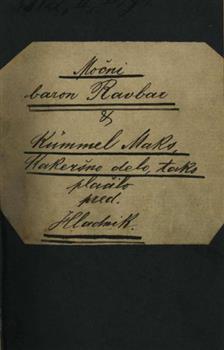 Močni
baron Ravbar
&
Kümmel Maks,
Kakeršno delo, tako
plačilo
pred.
Hladnik.